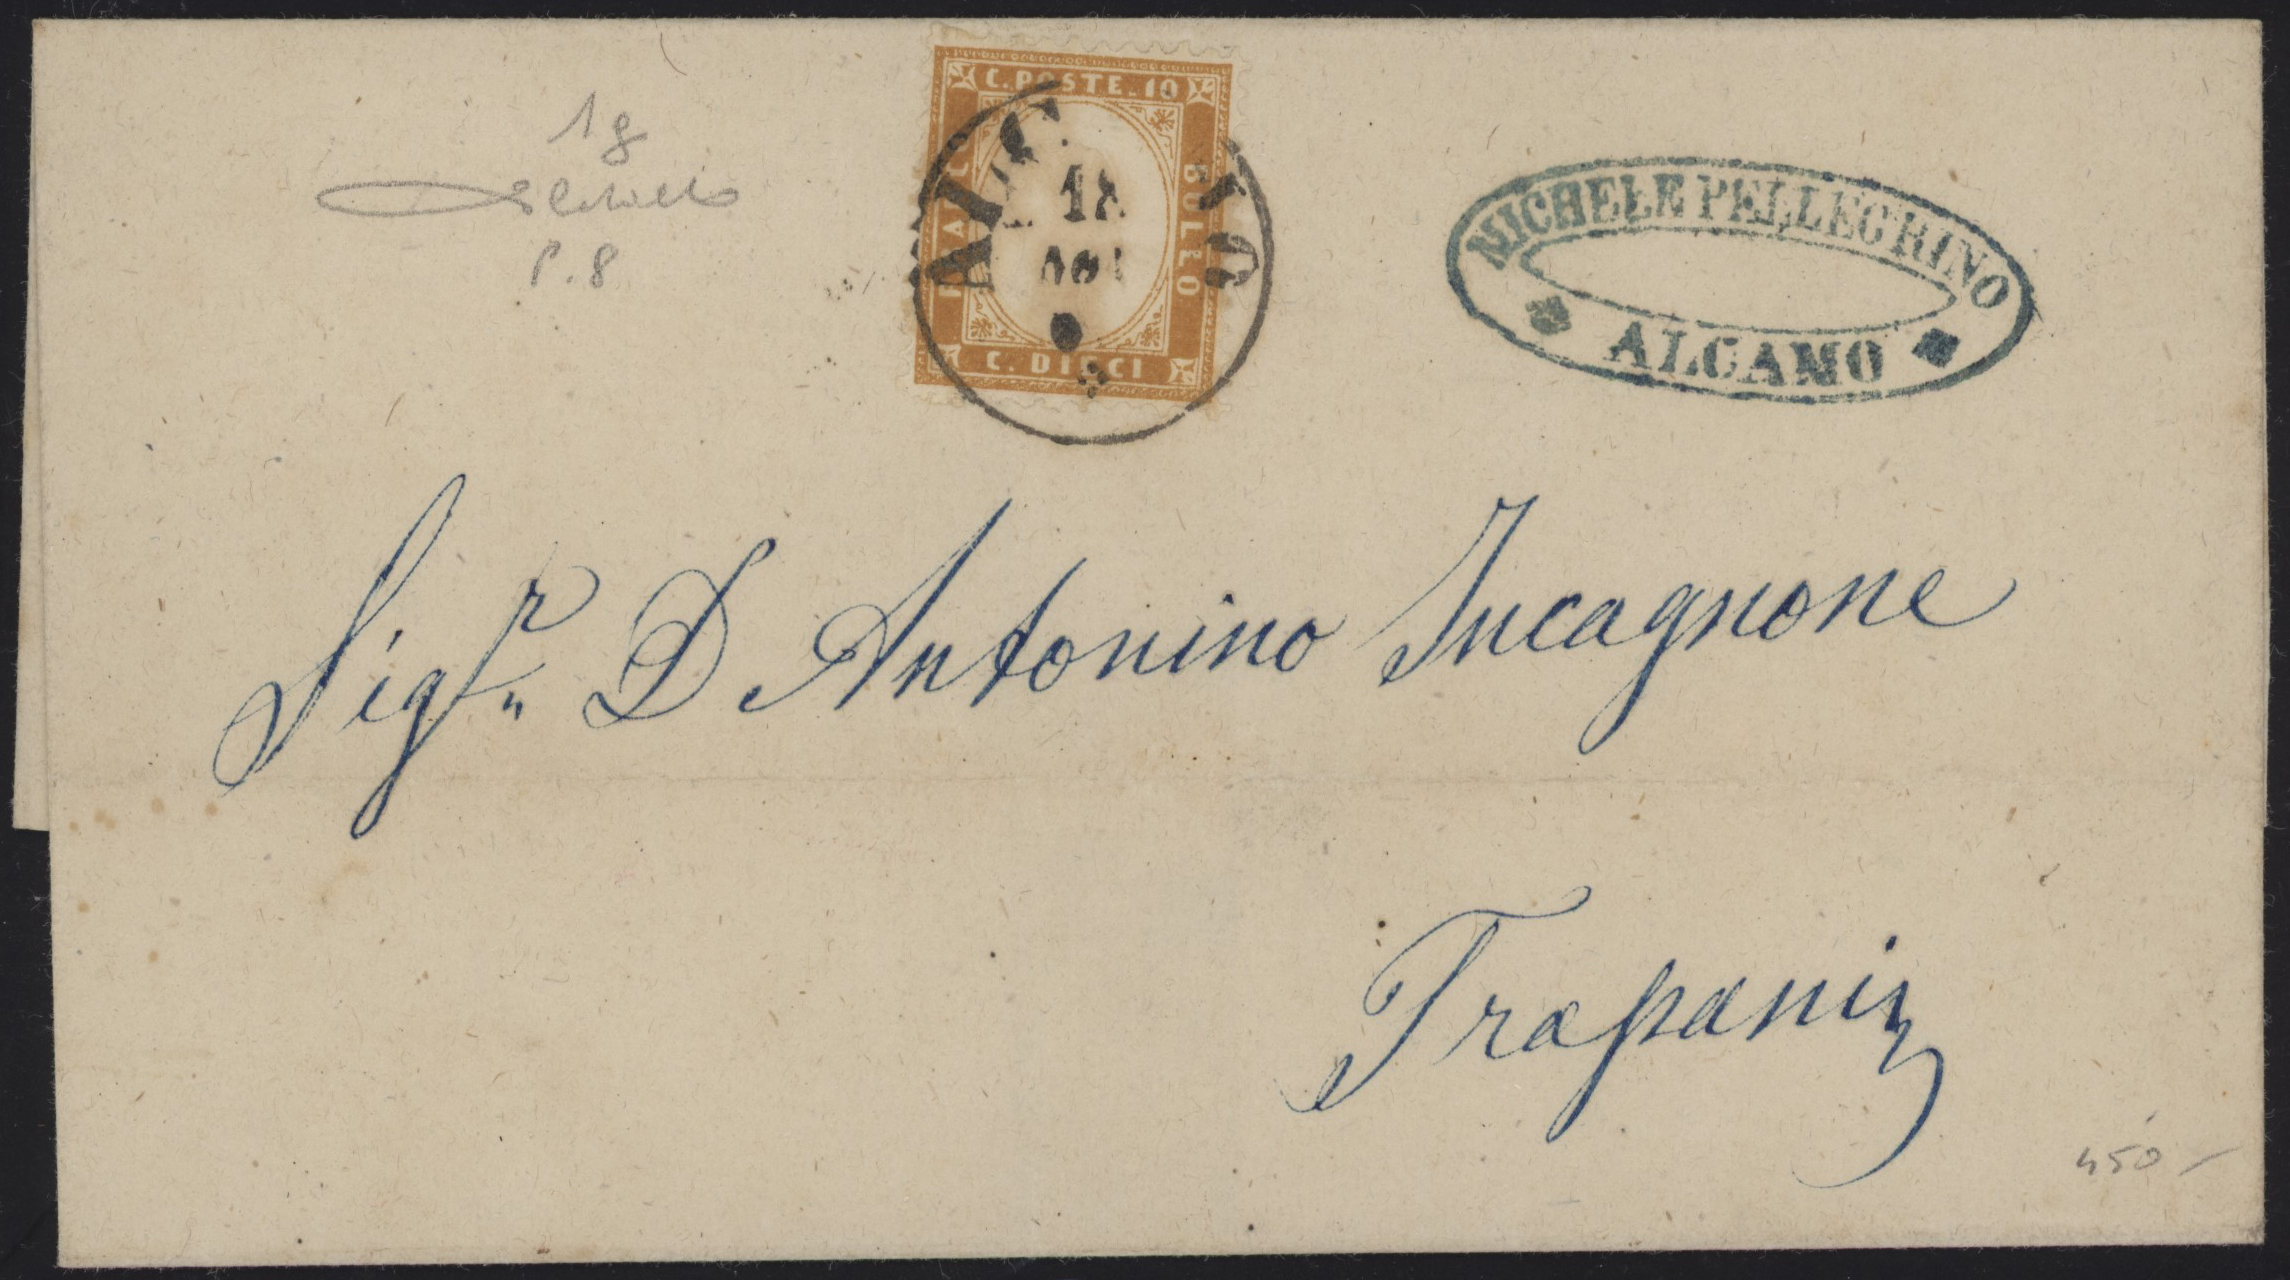 1g
P.8
C. POSTE. 10
BOLLO
C. DIECI
18
MICHELE PELLEGRINO
ALCAMO
Sigr. D Antonino Incagnone
Trapani
450-